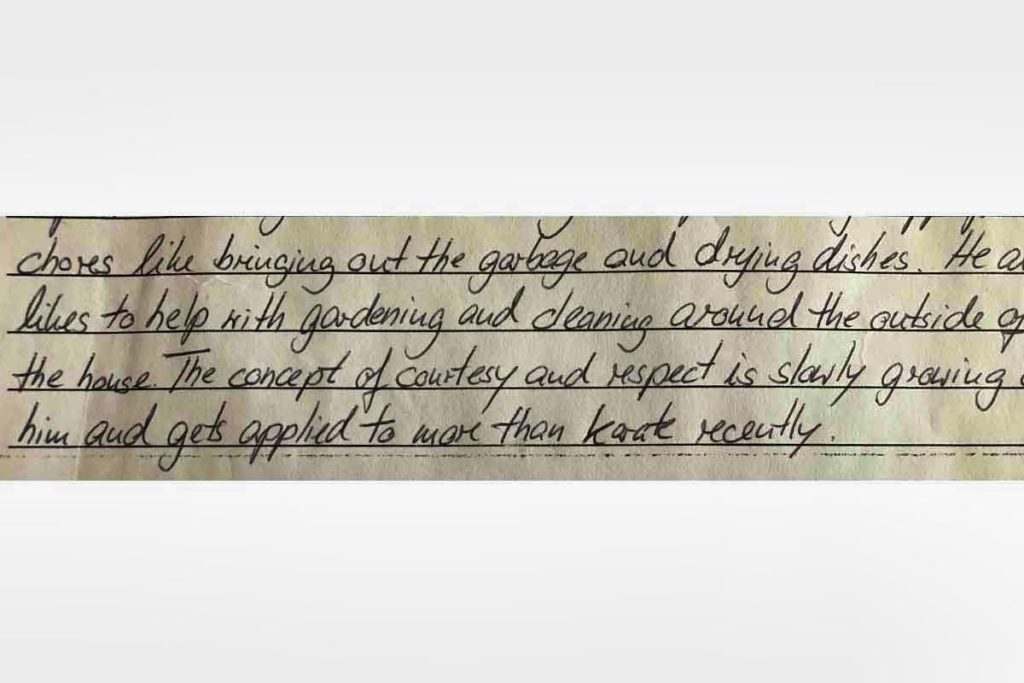 chores like bringing out the garbage and drying dishes. He a
likes to help with gardening and cleaning around the outside of
the house. The concept of courtesy and respect is slowly growing
him and gets applied to more than karate recently.